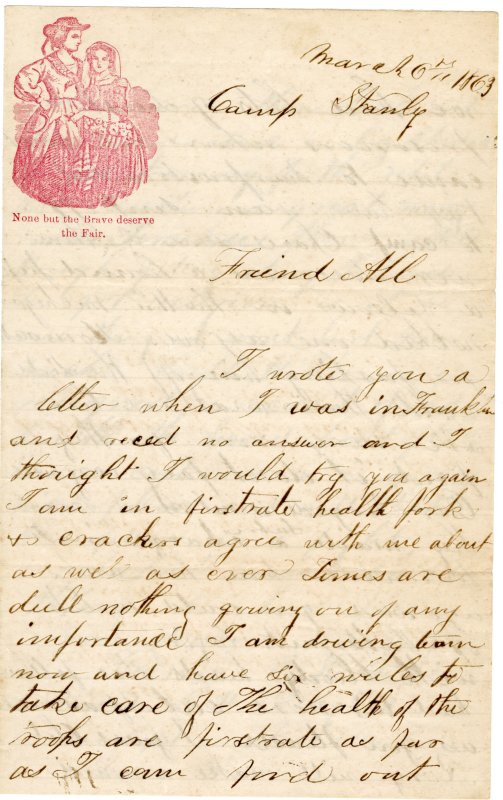 March 6th 1863
Camp Stanly
None but the Brave deserve
the Fair.
Friend All
I wrote you a
letter when I was in Franklin
and reced no answer and I
thought I would try you again
I am in firstrate health fork
& crackers agree with me about
as well as ever Times are
dull nothing gowing on of any
importance I am driving team
now and have six mules to
take care of The health of the
troops are firstrate as far
as I can find out